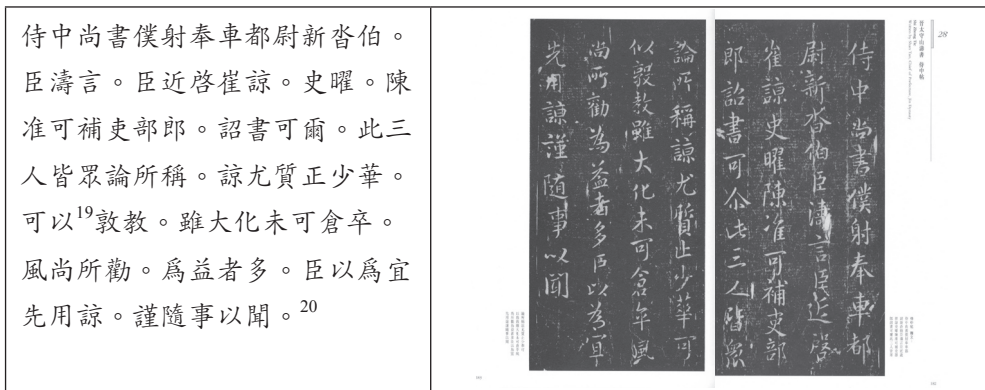 侍中尚書僕射奉車都尉新沓伯。
臣濤言。臣近啓崔諒。史曜。陳
准可補吏部郎。詔書可爾。此三
人皆眾論所稱。諒尤質正少華。
可以19敦教。雖大化未可倉卒。
風尚所勸。爲益者多。臣以爲宜
先用諒。謹隨事以聞。20
28
侍中尚書僕射奉車都
尉新沓伯臣濤言臣近啓
崔諒史曜陳准可補吏部
郎詔書可尒此三人皆眾
論所稱諒尤質止少華可
以敦教雖大化未可倉卒風
尚所勸為益者多臣以為宜
先用諒謹隨事以聞